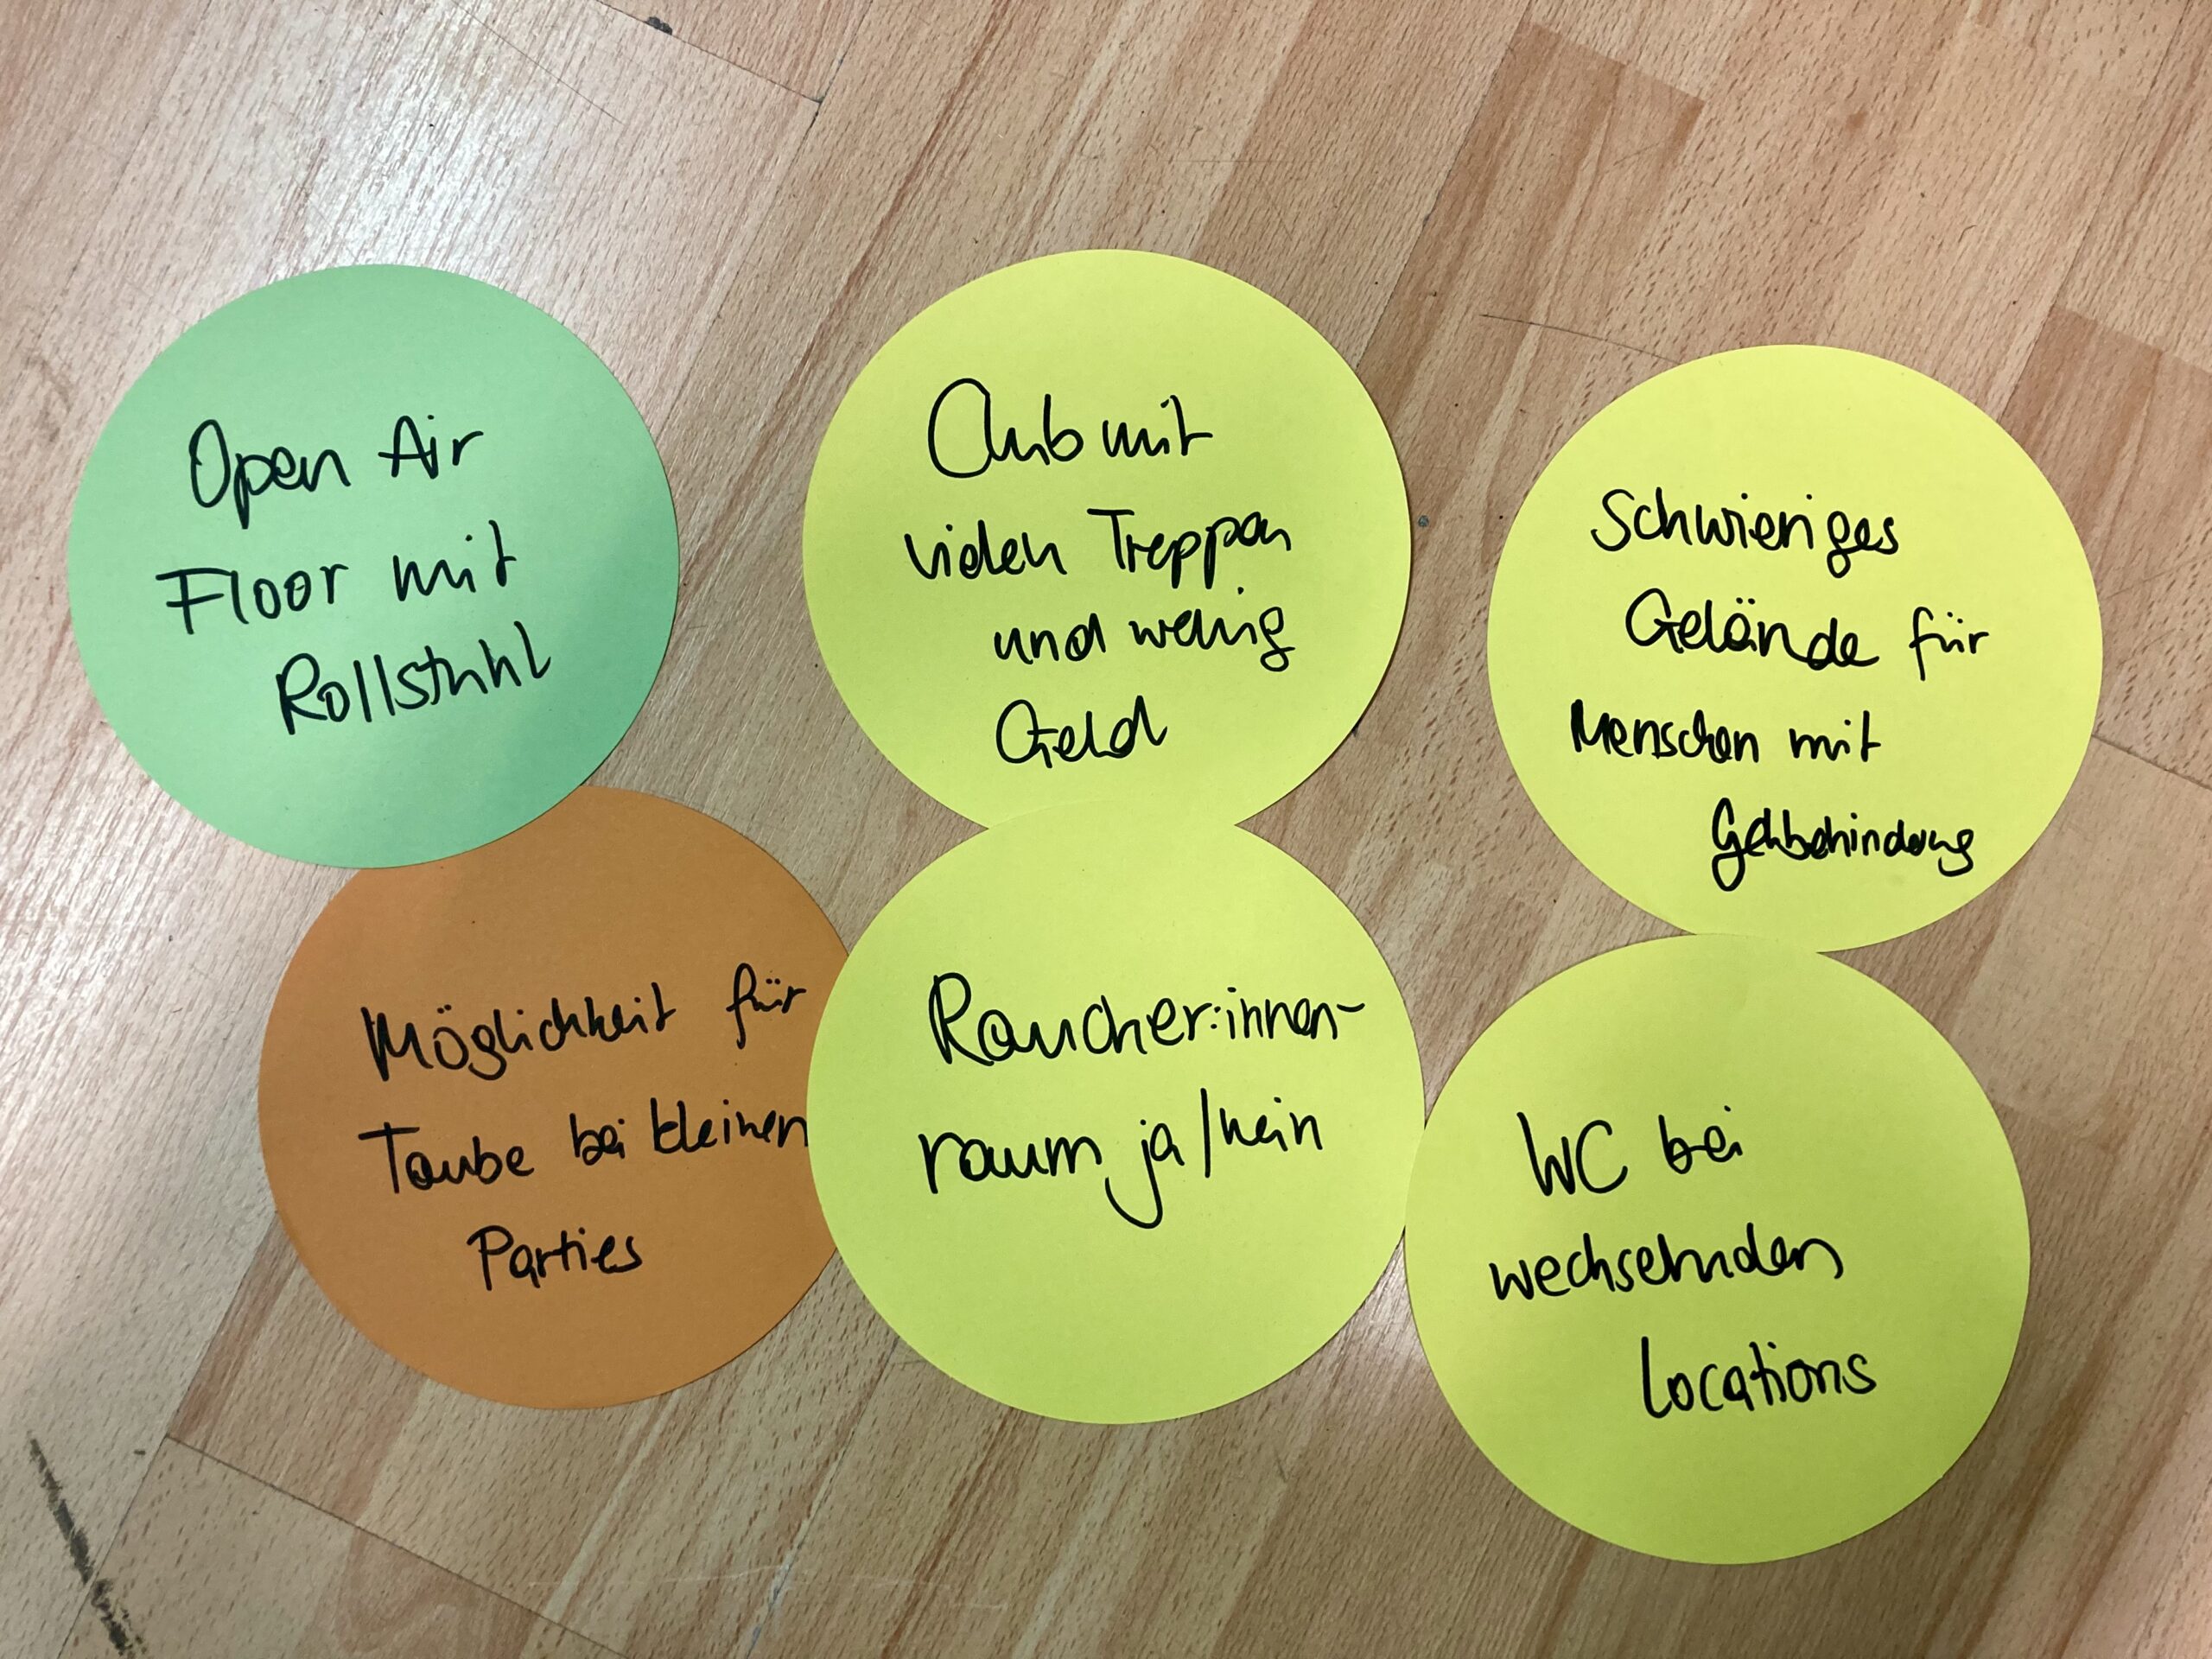 Open Air
Floor mit
Rollstuhl
Club mit
vielen Treppen
und wenig
Geld
Schwieriges
Gelände für
Menschen mit
Gehbehinderung
Möglichkeit für
Taube bei kleinen
Parties
Raucher:innen-
raum ja/nein
WC bei
wechselnden
Locations